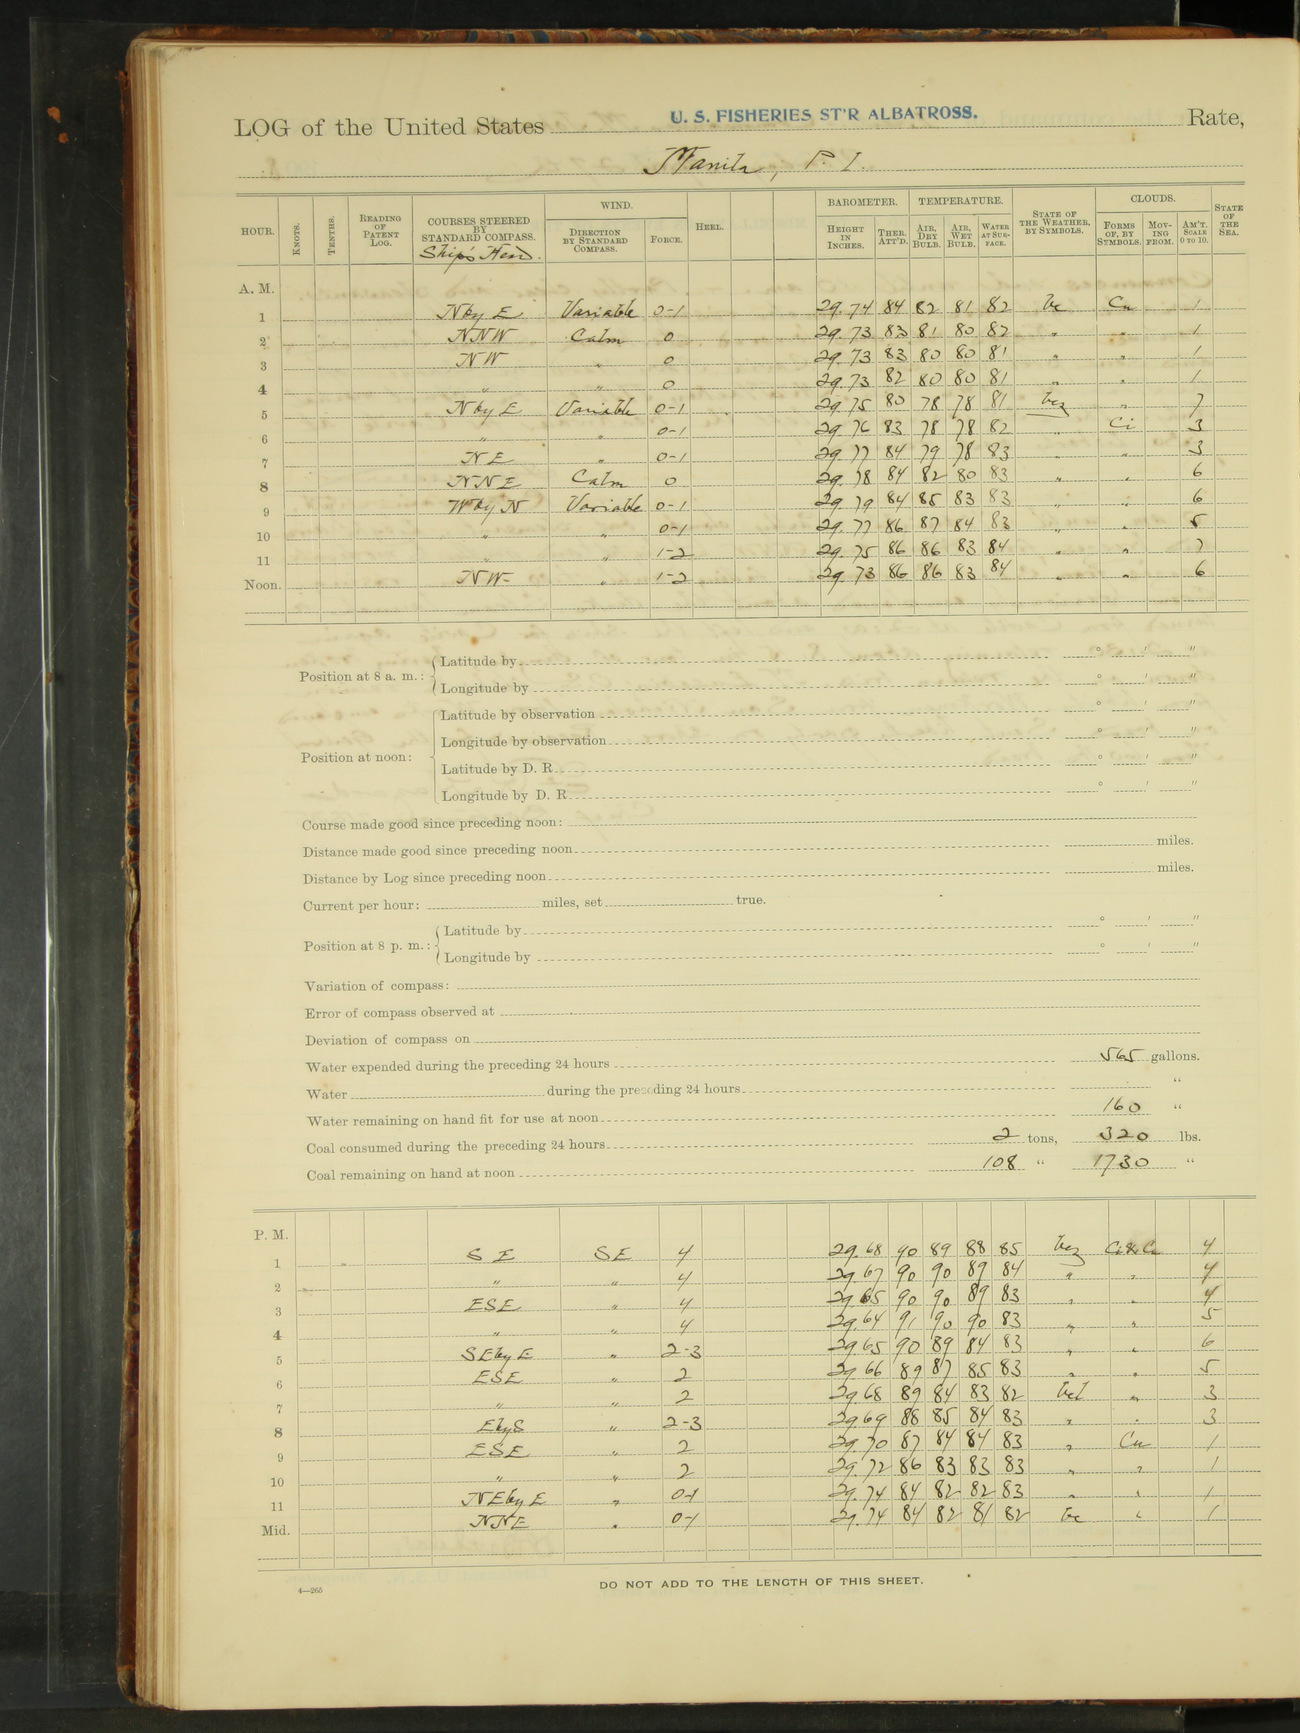 LOG of the United States U. S. FISHERIES ST'R ALBATROSS. Rate,
Manila, P. I.
HOUR. KNOTS. TENTHS. READING OF PATENT LOG. COURSES STEERED BY STANDARD COMPASS. Ship's Head. WIND. DIRECTION BY STANDARD COMPASS. FORCE. HEEL. BAROMETER. HEIGHT IN INCHES. THER. ATT'D. TEMPERATURE. AIR, DRY BULB. AIR, WET BULB. WATER AT SURFACE. STATE OF THE WEATHER, BY SYMBOLS. CLOUDS. FORMS OF, BY SYMBOLS. MOVING FROM. AM'T. SCALE 0 TO 10. STATE OF THE SEA.
A. M.
1 N by E Variable 0-1 29.74 84 82 81 82 bc Cu 1
2 NNW Calm 0 29.73 83 81 80 82 " " 1
3 NW " 0 29.73 83 80 80 81 " " 1
4 " " 0 29.73 82 80 80 81 " " 1
5 N by E Variable 0-1 29.75 80 78 78 81 bcz " 7
6 " " 0-1 29.76 83 78 78 82 " Ci 3
7 NE " 0-1 29.77 84 79 78 83 " " 3
8 NNE Calm 0 29.78 84 82 80 83 " " 6
9 W by N Variable 0-1 29.79 84 85 83 83 " " 6
10 " " 0-1 29.77 86 87 84 83 " " 5
11 " " 1-2 29.75 86 86 83 84 " " 7
Noon. NW " 1-2 29.73 86 86 83 84 " " 6
Position at 8 a. m.: Latitude by ° ' "
Longitude by ° ' "
Position at noon: Latitude by observation ° ' "
Longitude by observation ° ' "
Latitude by D. R. ° ' "
Longitude by D. R. ° ' "
Course made good since preceding noon:
Distance made good since preceding noon miles.
Distance by Log since preceding noon miles.
Current per hour: miles, set true.
Position at 8 p. m.: Latitude by ° ' "
Longitude by ° ' "
Variation of compass:
Error of compass observed at
Deviation of compass on
Water expended during the preceding 24 hours 565 gallons.
Water during the preceding 24 hours "
Water remaining on hand fit for use at noon 160 "
Coal consumed during the preceding 24 hours 2 tons, 320 lbs.
Coal remaining on hand at noon 108 " 1730 "
P. M.
1 SE SE 4 29.68 90 89 88 85 bcz Ci & Cu 4
2 " " 4 29.67 90 90 89 84 " " 4
3 ESE " 4 29.65 90 90 89 83 " " 4
4 " " 4 29.64 91 90 90 83 " " 5
5 SE by E " 2-3 29.65 90 89 84 83 " " 6
6 ESE " 2 29.66 89 87 85 83 " " 5
7 " " 2 29.68 89 84 83 82 bcl " 3
8 E by S " 2-3 29.69 88 85 84 83 " " 3
9 ESE " 2 29.70 87 84 84 83 " Cu 1
10 " " 2 29.72 86 83 83 83 " " 1
11 NE by E " 0-1 29.74 84 82 82 83 " " 1
Mid. NNE " 0-1 29.74 84 82 81 82 bc " 1
4—265
DO NOT ADD TO THE LENGTH OF THIS SHEET.